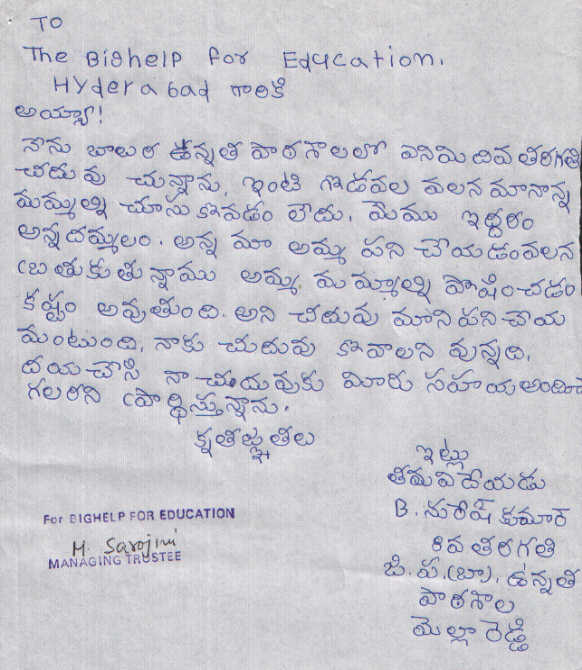 TO
The Bighelp for Education.
Hyderabad గారికి
అయ్యా!
నేను బాలుర ఉన్నత పాఠశాలలో ఎనిమిదివ తరగతి
చదువు చున్నాను. ఇంటి గొడవల వలన మానాన్న
మమ్మల్ని చూసు కొవడం లేదు. మేము ఇద్దరం
అన్నదమ్మలం. అన్న మా అమ్మ పని చేయడంవలన
బ్రతుకుతున్నాము అమ్మ మమ్మాల్ని పొషించడం
కష్టం అవుతుంది. అని చదువు మాని పని చేయ
మంటుంది. నాకు చుదువు కొవాలని వున్నది.
దయచేసి నా చదువుకు మీరు సహయ అందించ
గలరని ప్రార్థిస్తున్నాను.
క్నతజ్ఞతలు
ఇట్లు
తమవిదేయుడు
B. సురేష్ కుమార్
8వ తరగతి
జి.ప.(బా). ఉన్నత
పాఠశాల
మెల్లారెడ్డి
For BIGHELP FOR EDUCATION
M. Sarojini
MANAGING TRUSTEE